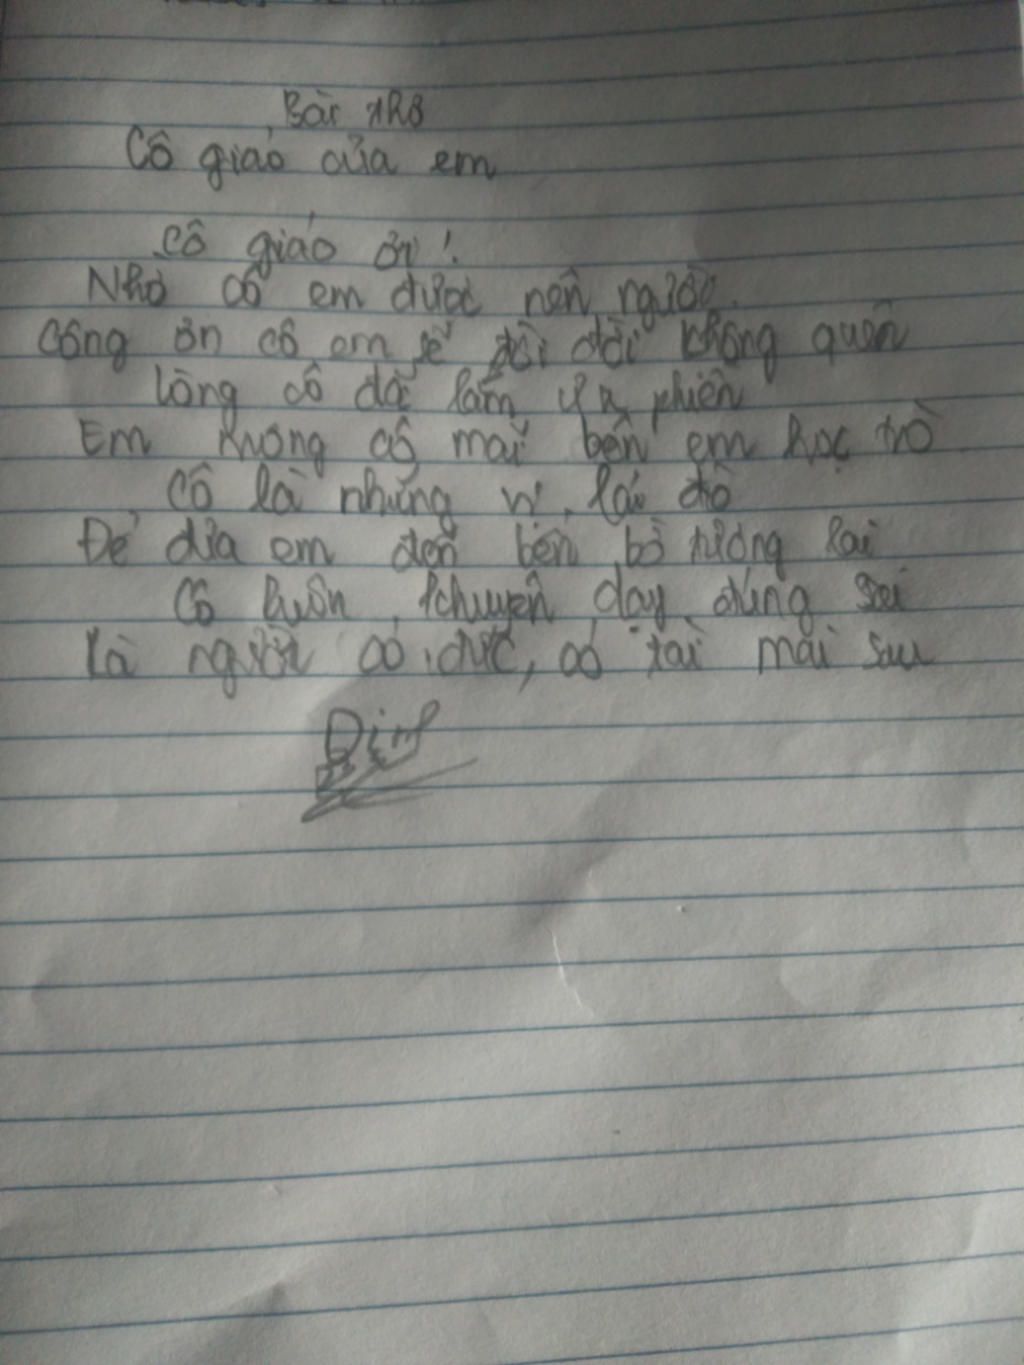 Bài thơ
Cô giáo của em
Cô giáo ơi!
Nhờ cô em được nên người.
Công ơn cô em sẽ đời đời không quên
Lòng cô đã lắm phiền
Em mong cô mãi bên em học trò
Cô là những vị lái đò
Để đưa em đến bên bờ tương lai
Cô luôn khuyên dạy đúng sai
Là người có đức, có tài mai sau